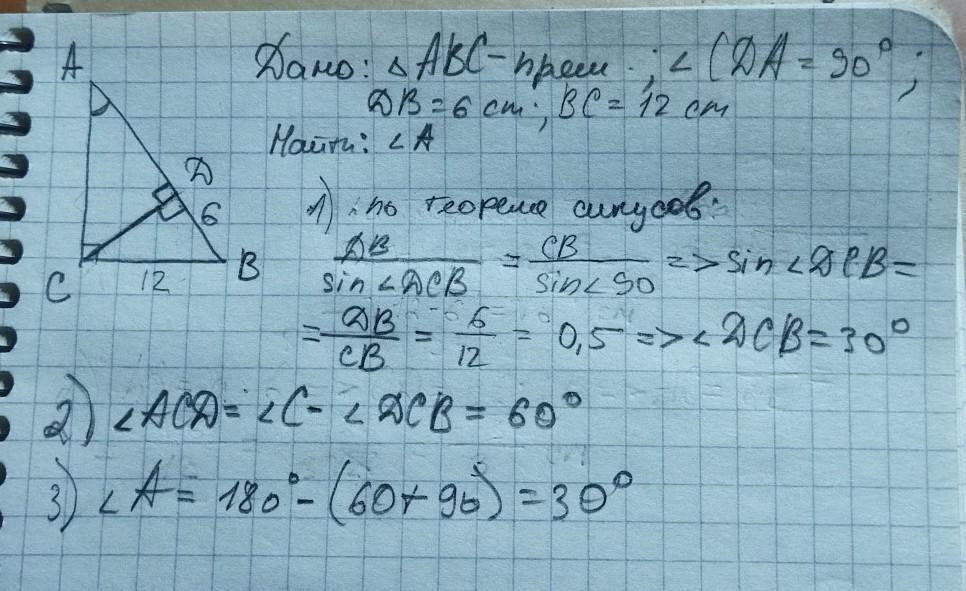 Дано: △ABC - прям.; ∠CDA = 90°;
DB = 6 cm; BC = 12 cm
Найти: ∠A
A
D
6
B
12
C
1) по теорема синусов:
DB / sin∠DCB = CB / sin∠90 => sin∠DCB =
= DB / CB = 6 / 12 = 0,5 => ∠DCB = 30°
2) ∠ACD = ∠C - ∠DCB = 60°
3) ∠A = 180° - (60 + 90) = 30°